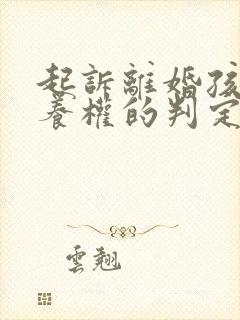 起訴離婚孩
養權的判定
雲翹